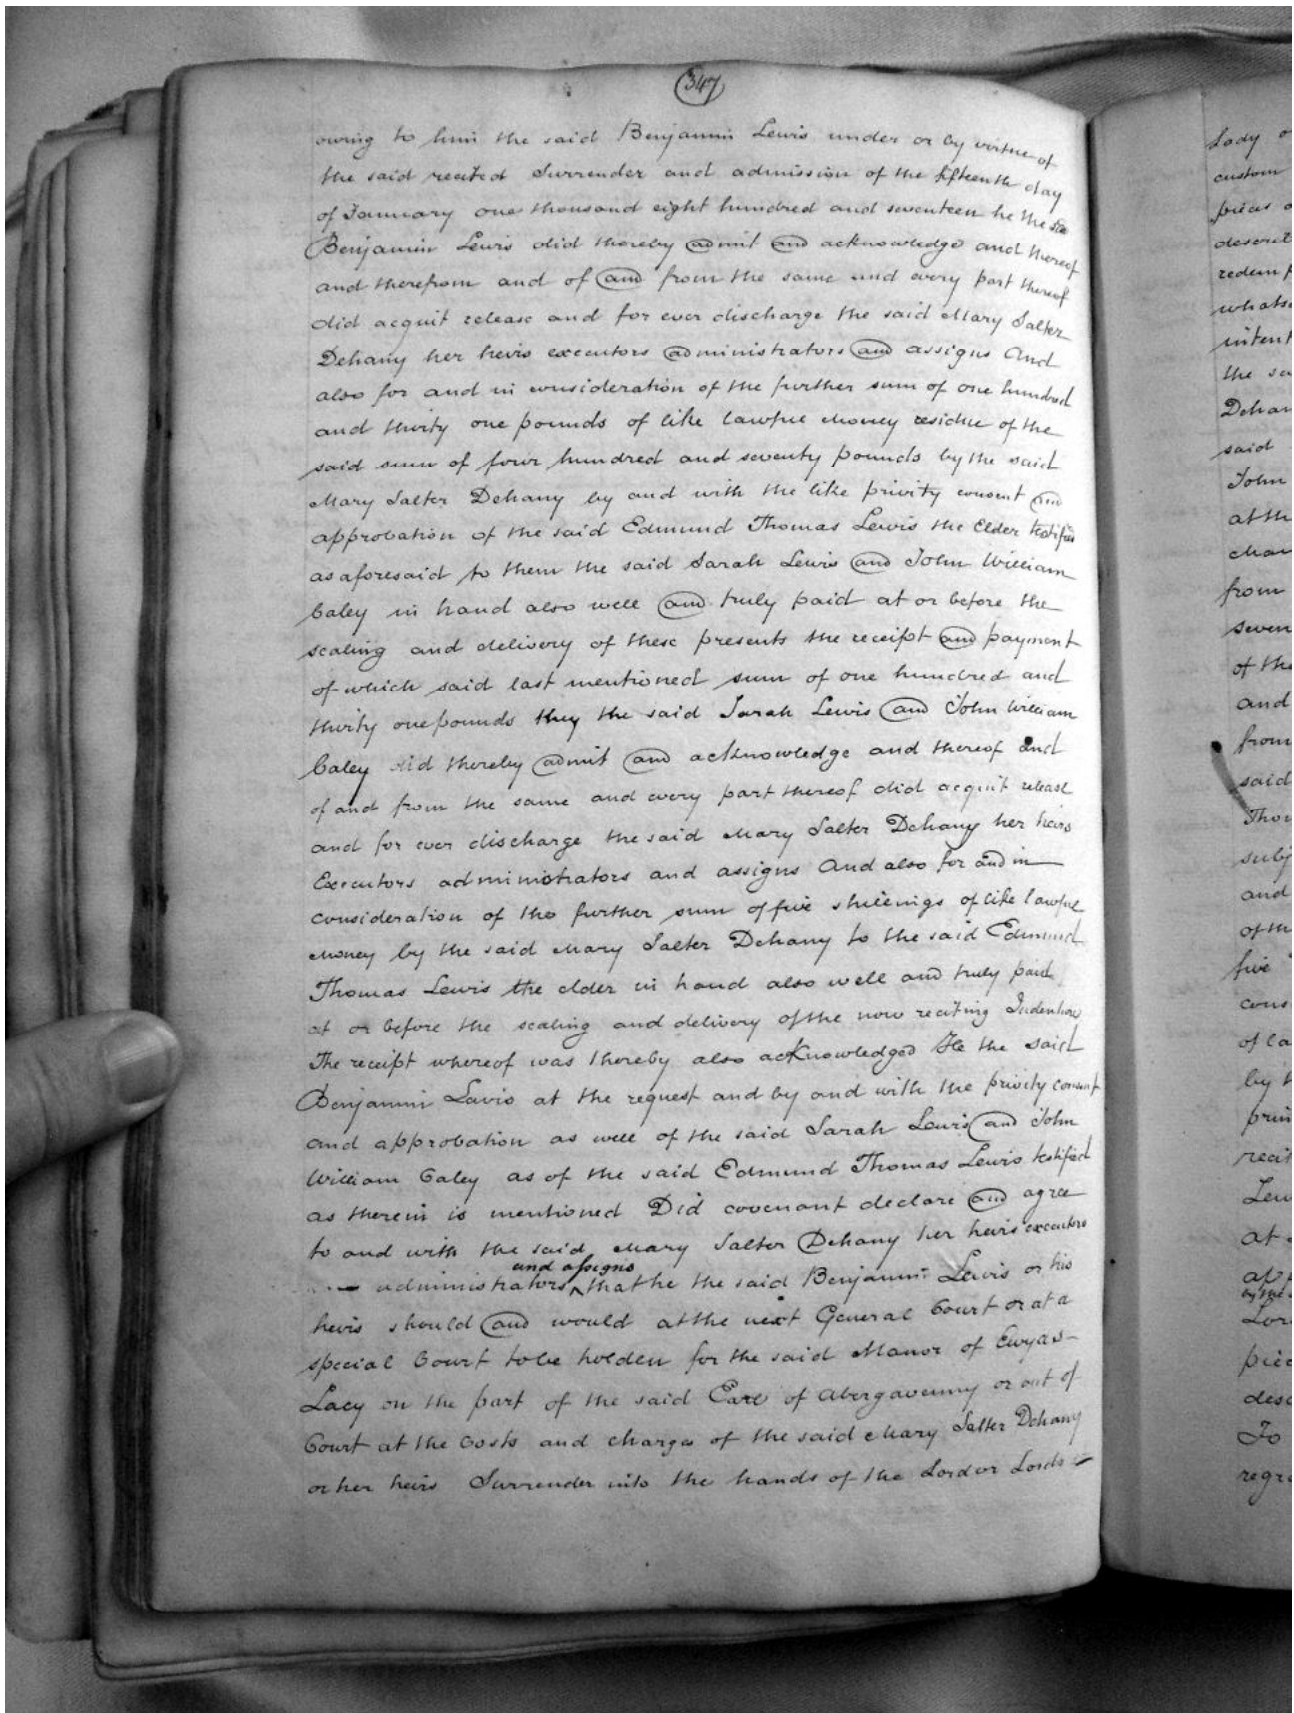 347
owing to him the said Benjamin Lewis under or by virtue of
the said recited Surrender and admission of the fifteenth day
of January one thousand eight hundred and seventeen he the said
Benjamin Lewis did thereby admit and acknowledge and thereof
and therefrom and of and from the same and every part thereof
did acquit release and for ever discharge the said Mary Salter
Dehany her heirs executors administrators and assigns And
also for and in consideration of the further sum of one hundred
and thirty one pounds of like lawful Money residue of the
said sum of four hundred and seventy pounds by the said
Mary Salter Dehany by and with the like privity consent and
approbation of the said Edmund Thomas Lewis the Elder testified
as aforesaid to them the said Sarah Lewis and John William
Caley in hand also well and truly paid at or before the
sealing and delivery of these presents the receipt and payment
of which said last mentioned sum of one hundred and
thirty one pounds they the said Sarah Lewis and John William
Caley did thereby admit and acknowledge and thereof and
of and from the same and every part thereof did acquit release
and for ever discharge the said Mary Salter Dehany her heirs
Executors administrators and assigns And also for and in
consideration of the further sum of five shillings of like lawful
Money by the said Mary Salter Dehany to the said Edmund
Thomas Lewis the elder in hand also well and truly paid
at or before the sealing and delivery of the now reciting Indenture
The receipt whereof was thereby also acknowledged He the said
Benjamin Lewis at the request and by and with the privity consent
and approbation as well of the said Sarah Lewis and John
William Caley as of the said Edmund Thomas Lewis testified
as therein is mentioned Did covenant declare and agree
to and with the said Mary Salter Dehany her heirs executors
and assigns
administrators ^ that he the said Benjamin Lewis or his
heirs should and would at the next General Court or at a
special Court to be holden for the said Manor of Ewyas
Lacy on the part of the said Earl of Abergavenny or out of
Court at the Costs and charges of the said Mary Salter Dehany
or her heirs Surrender into the hands of the Lord or Lords
Lady
custom
pieces
redemp
intent
the
said
John
at the
from
seven
of the
and
from
said
and
of the
five
cons
of la
by
Lew
at